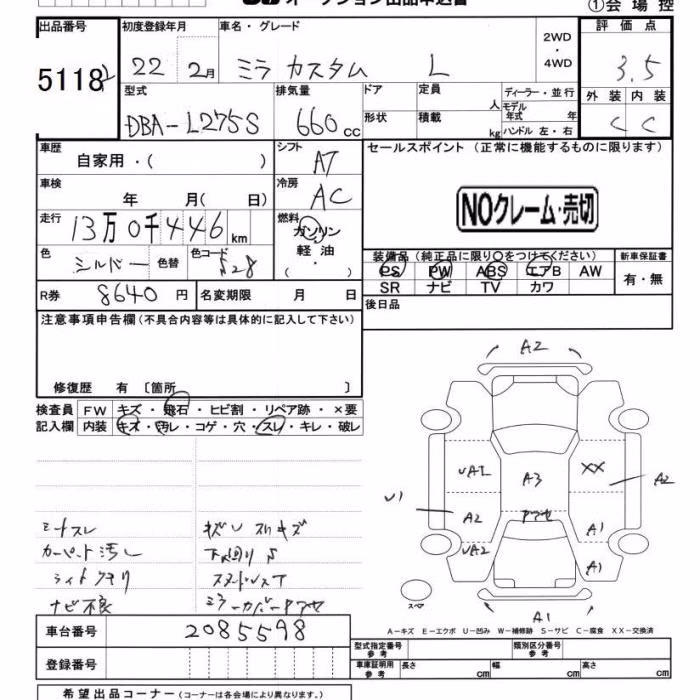 オークション出品申込書
①会場控
出品番号 初度登録年月 車名・グレード 2WD・4WD 評価点
5118 22 2月 ミラ カスタム L 3.5
型式 排気量 ドア 定員 人 ディーラー・並行 外装 内装
DBA-L275S 660cc 形状 積載 kg モデル年式 年 ハンドル 左・右 C C
車歴 自家用・( ) シフト AT セールスポイント (正常に機能するものに限ります)
車検 年 月( 日) 冷房 AC
NOクレーム・売切
走行 13万0千446km 燃料 ガソリン・軽油・( )
色 シルバー 色替 色コード S28
装備品 (純正品に限り○をつけてください) 新車保証書
PS PW ABS エアB AW 有・無
SR ナビ TV カワ
R券 8640円 名変期限 月 日
後日品
注意事項申告欄(不具合内容等は具体的に記入して下さい)
修復歴 有 〔箇所 〕
検査員 FW キズ・飛石・ヒビ割・リペア跡・×要
記入欄 内装 キズ・汚レ・コゲ・穴・スレ・キレ・破レ
A2
A3
XX
A2
U1
A2
A1
A1
シートスレ
カーペット汚レ
ライトクモリ
ナビ不良
下廻りS
スペア
A1
A-キズ E-エクボ U-凹み W-補修跡 S-サビ C-腐食 XX-交換済
車台番号 2085598
登録番号
型式指定番号 参考 類別区分番号 参考
車庫証明用 参考 長さ cm 幅 cm 高さ cm
希望出品コーナー (コーナーは各会場により異なります。)